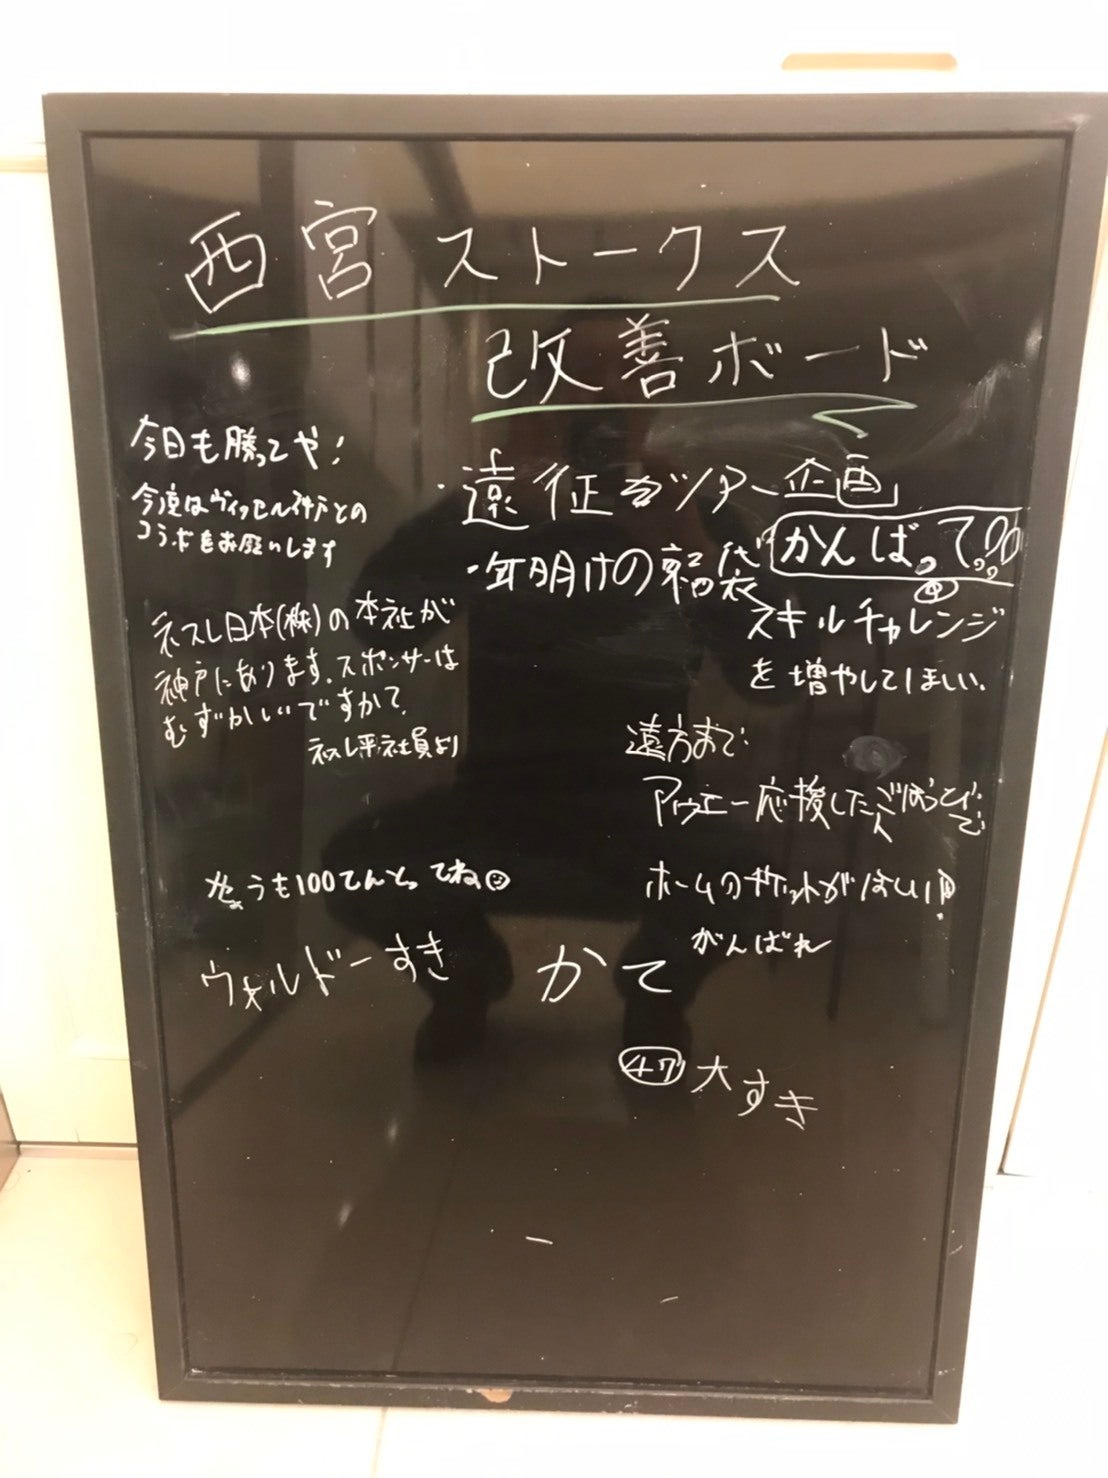 西宮ストークス
改善ボード
今日も勝ってや!
今度はヴィッセル神戸との
コラボをお願いします
ネスレ日本(株)の本社が
神戸にあります。スポンサーは
むずかしいですかて
ネスレ平社員より
きょうも100てんとってね
ウォルドーすき
・遠征ツアー企画
かんばって
・年明けの福袋
スキルチャレンジ
を増やしてほしい。
遠方まで
アウェー応援した人
ホームのチケットがほしい!
がんばれ
かて
47 大すき